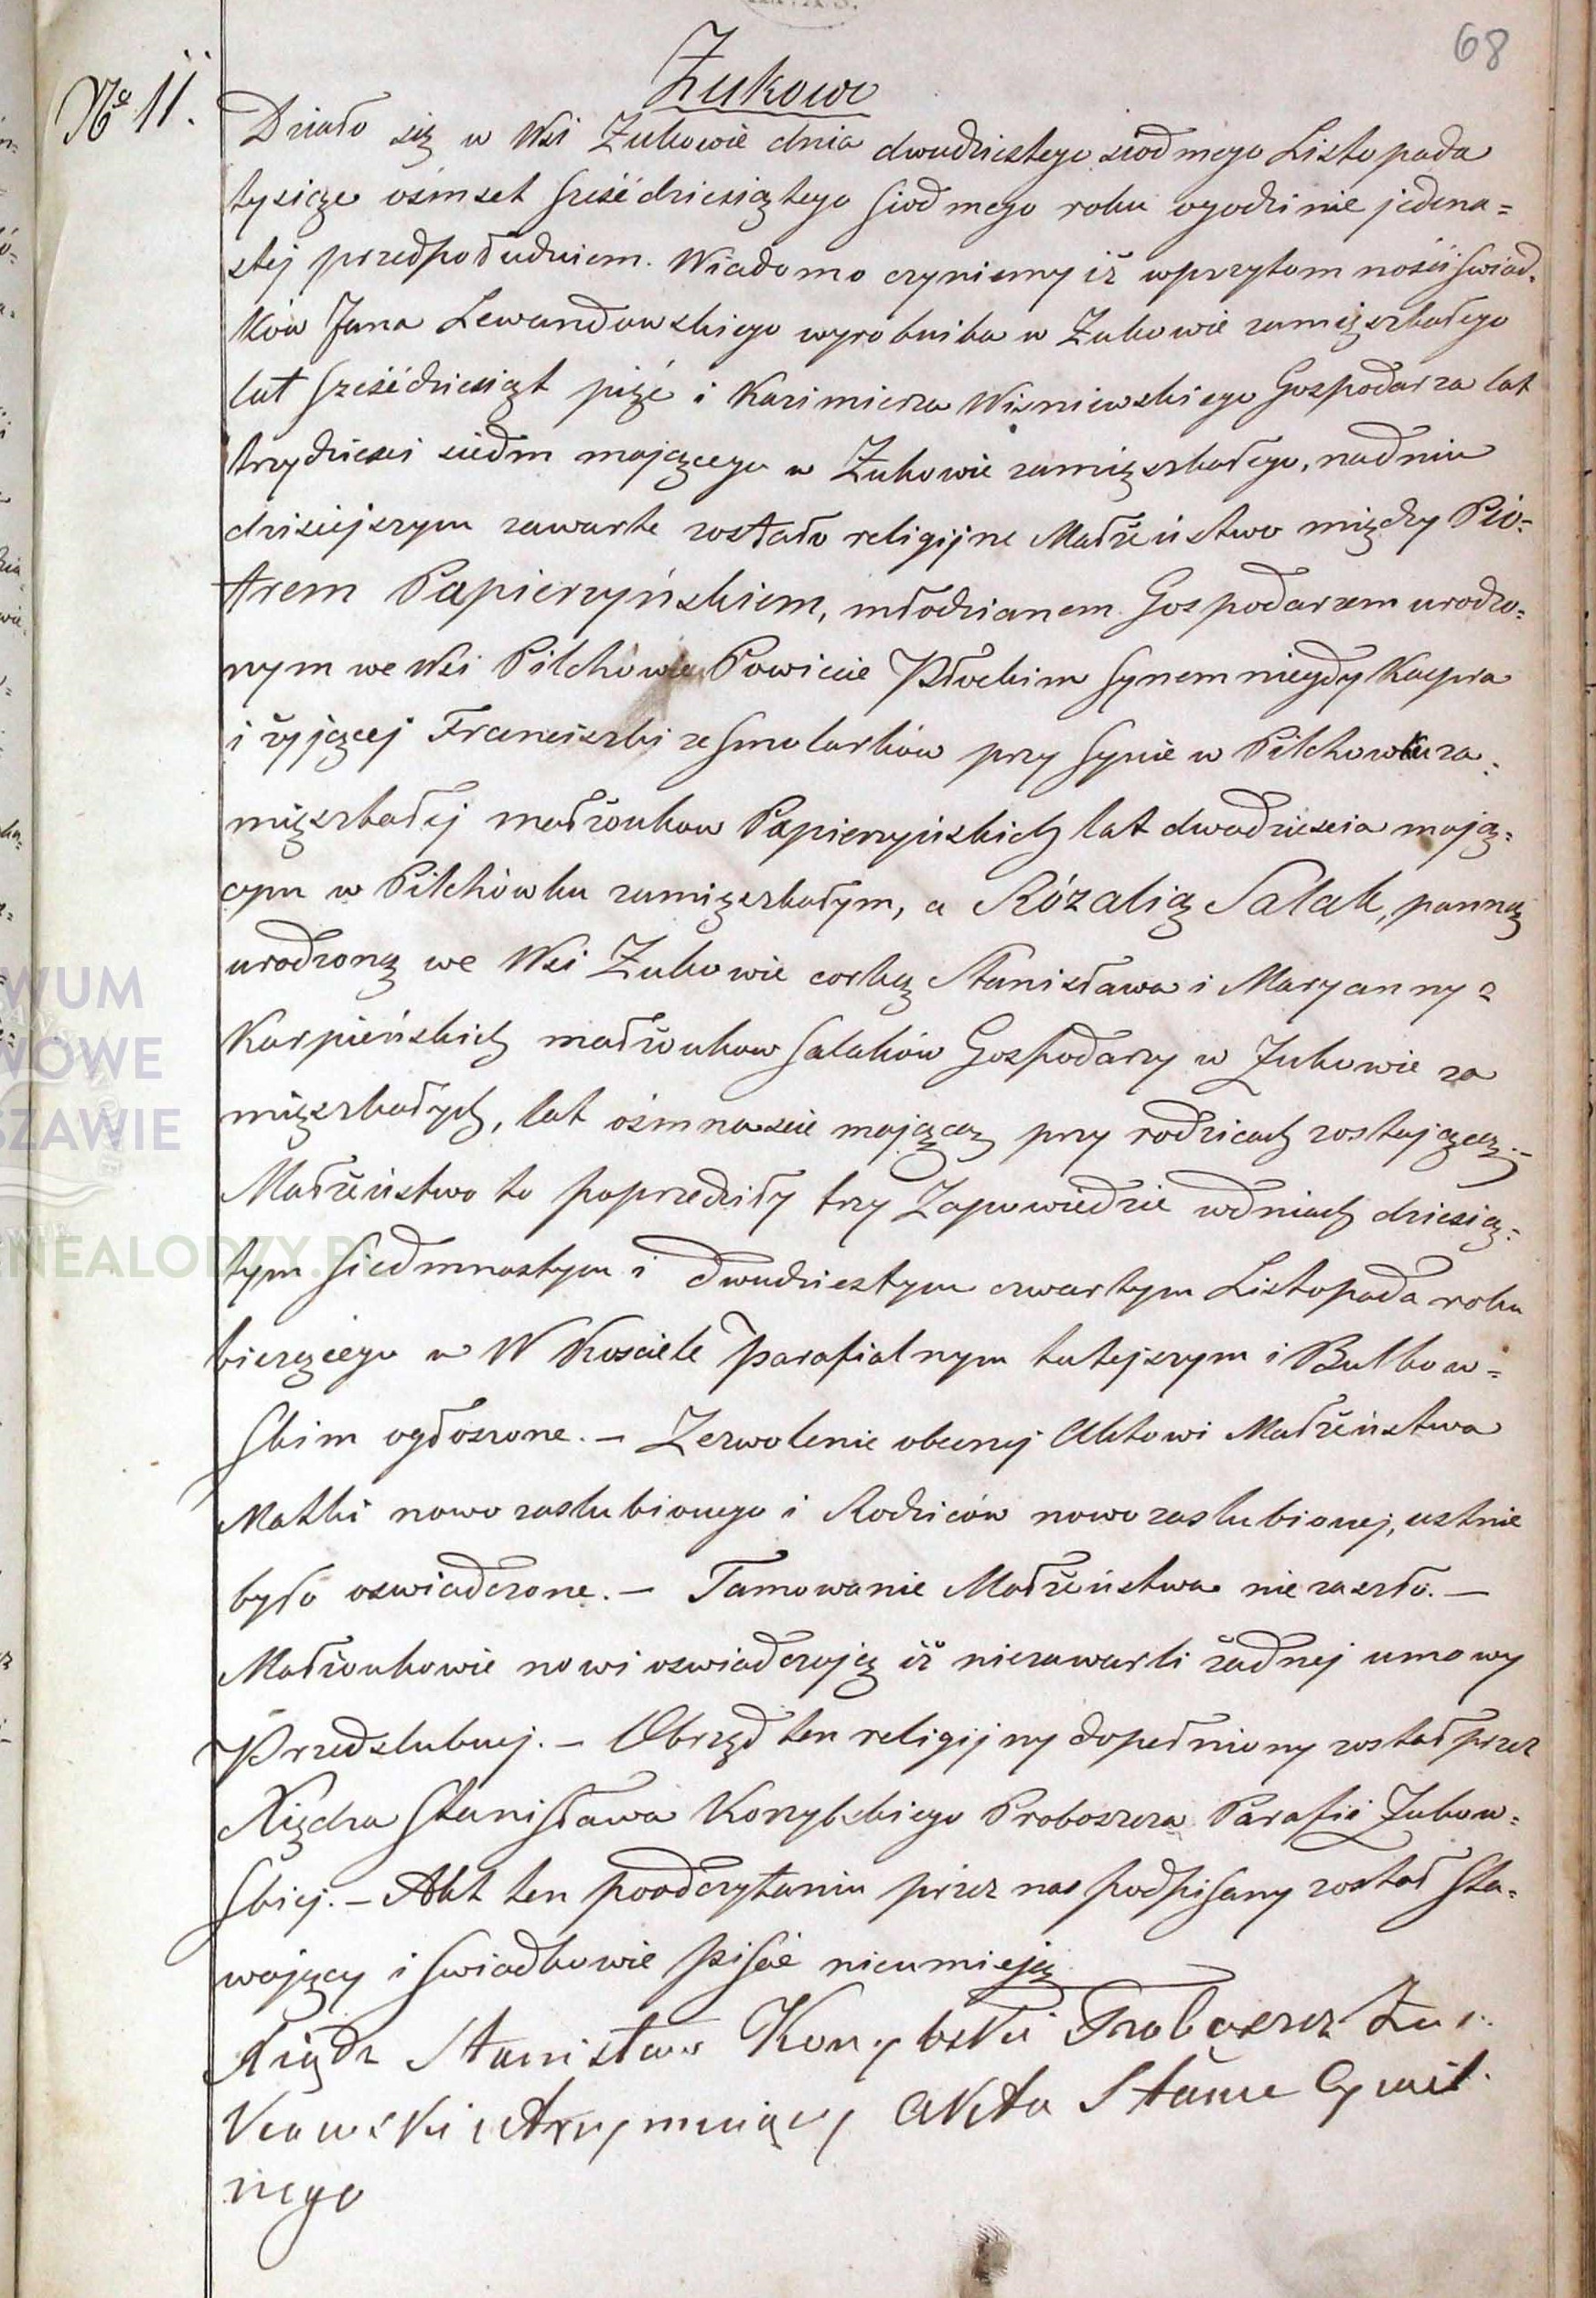 68
Żukowo
No 11.
Działo się w Wsi Żukowie dnia dwudziestego siodmego Listopada
tysiące ośmset sześćdziesiątego siodmego roku ogodzinie jedena=
stej przedpołudniem. Wiadomo czyniemy iż wprzytomności świad=
ków Jana Lewandowskiego wyrobnika w Żukowie zamięszkałego
lat sześćdziesiąt pięć i Kazimierza Wisniewskiego Gospodarza lat
trzydzieści siedm mającego w Żukowie zamięszkałego, nadniu
dzisiejszym zawarte zostało religijne Małżeństwo między Pio=
trem Papierzyńskiem, młodzianem Gospodarzem urodzo=
nym we Wsi Pilchowie Powiecie Płockim synem niegdy Kacpra
i żyjącej Franciszki ze Smolarków przy synie w Pilchowku za=
mięszkałej małżonkow Papierzyńskich lat dwadzieścia mają=
cym w Pilchówku zamięszkałym, a Rózalią Salak, panną
urodzoną we Wsi Żukowie corką Stanisława i Maryanny z
Karpieńskich małżonkow Salaków Gospodarzy w Żukowie za
mięszkałych, lat ośmnaście mającą przy rodzicach zostającą.=
Małżeństwo to poprzedziły trzy Zapowiedzie wdniach dziesią=
tym siedmnastym i dwudziestym czwartym Listopada roku
bieżącego w W Kosciele parafialnym tutejszym i Bulkow=
skim ogłoszone. – Zezwolenie obecnej Aktowi Małżeństwa
Matki nowozaslubionego i Rodziców nowozaslubionej, ustnie
było oswiadczone. – Tamowanie Małżeństwa nie zaszło. –
Małżonkowie nowi oswiadczają iż niezawarli żadnej umowy
Przedslubnej. – Obrząd ten religijny dopełniony został przez
Xiędza Stanisława Konrybskiego Proboszcza Parafii Żukow=
skiej. – Akt ten poodczytaniu przez nas podpisany został Sta=
wający i swiadkowie pisać nieumieją
Xiądz Stanisław Proboszcz Żu=
kowski utrzymujący Akta Stanu Cywil=
nego